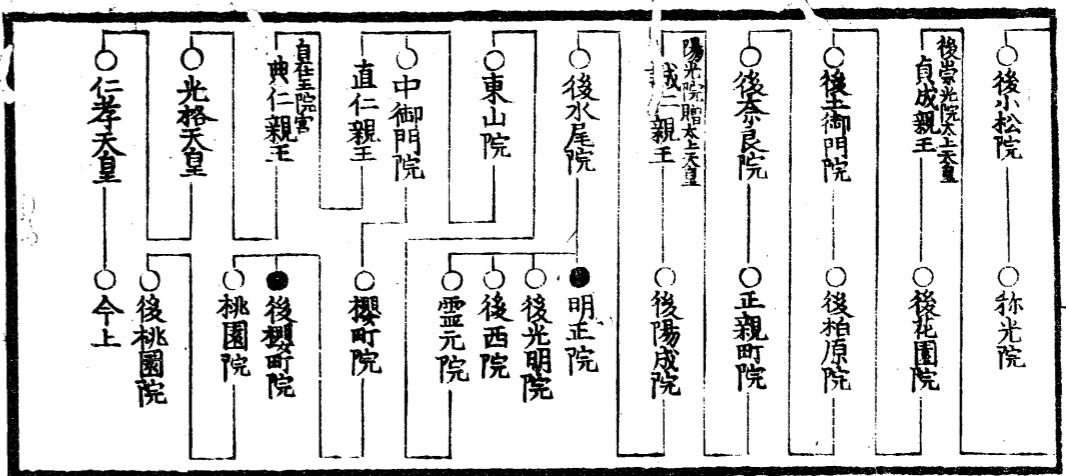 後小松院
称光院
後崇光院太上天皇
貞成親王
後花園院
後土御門院
後柏原院
後奈良院
正親町院
陽光院贈太上天皇
誠仁親王
後陽成院
後水尾院
明正院
後光明院
後西院
霊元院
東山院
中御門院
直仁親王
櫻町院
自在王院宮
典仁親王
後櫻町院
桃園院
光格天皇
後桃園院
仁孝天皇
今上